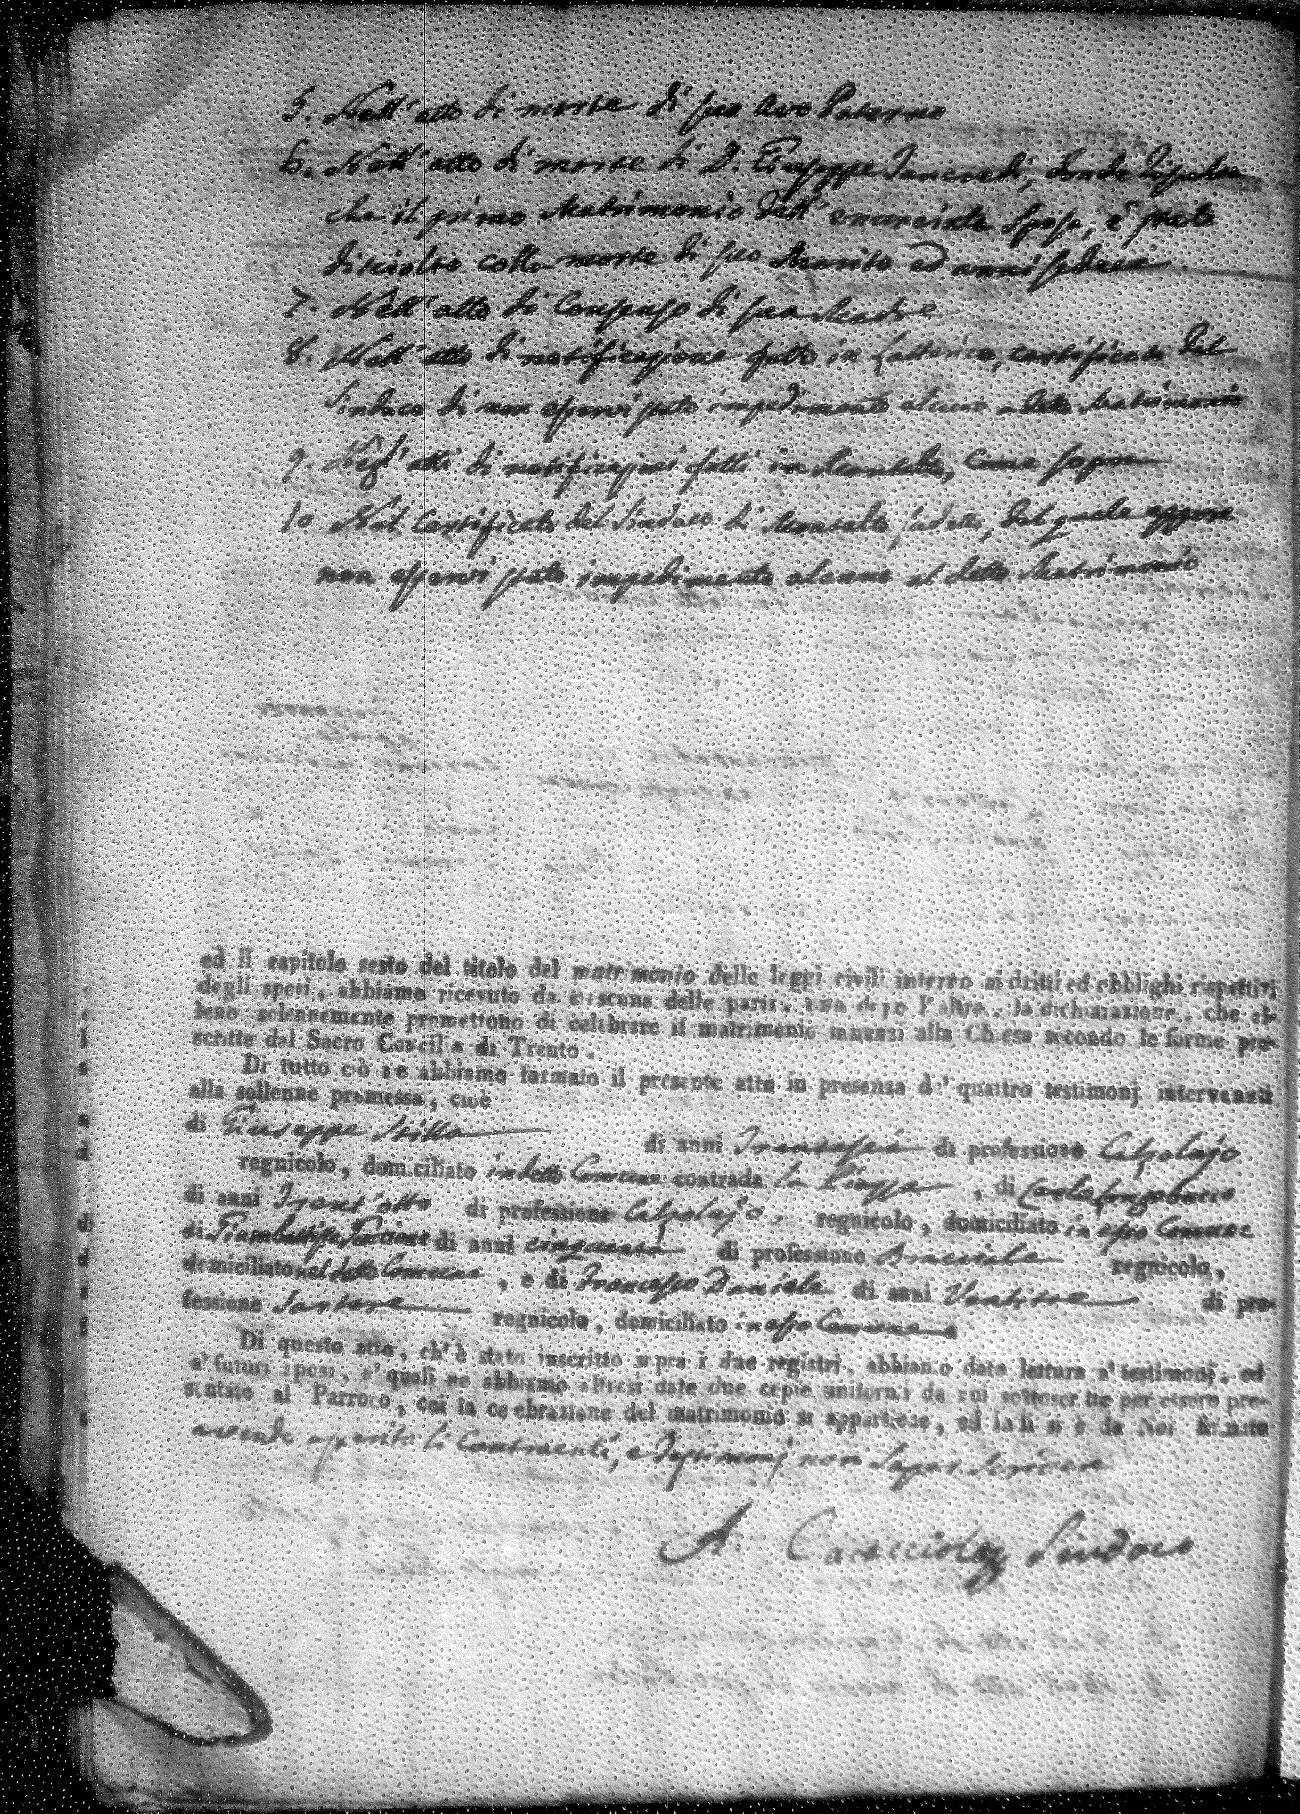 5. Nell'atto di morte di suo Avo Paterno
6. Nell'atto di morte di D. Giuseppe Tancredi, donde
che il primo Matrimonio dell'enunciata Sposa, è stato
disciolto colla morte di suo Marito ed anni
7. Nell'atto di Consenso di sua Madre
8. Nell'atto di notificazione fatto in certificato del
Sindaco di non esservi stato impedimento alcuno a detto Matrimonio
9. Negl'atti di notificazioni fatti in come sopra
10 Nel Certificato del Sindaco di del quale appare
non esservi stato impedimento alcuno al detto Matrimonio
ed il capitolo sesto del titolo del matrimonio delle leggi civili intorno ai dritti ed obblighi rispettivi
degli sposi, abbiamo ricevuto da ciascuna delle parti, una dopo l'altra, la dichiarazione, che el-
leno solennemente promettono di celebrare il matrimonio innanzi alla Chiesa secondo le forme pre-
scritte dal Sacro Concilio di Trento.
Di tutto ciò ne abbiamo formato il presente atto in presenza de' quattro testimonj intervenuti
alla sollenne promessa, cioè
di Giuseppe di anni di professione Calzolajo
regnicolo, domiciliato in detto Comune contrada la Piazza, di
di anni Trent'otto di professione Calzolajo, regnicolo, domiciliato in esso Comune
di di anni cinquanta di professione regnicolo,
domiciliato nel detto Comune, e di Francesco Daniele di anni di pro-
fessione Sartore regnicolo, domiciliato in esso Comune
Di questo atto, ch'è stato inscritto sopra i due registri, abbiamo dato lettura a' testimonj, ed
a' futuri sposi, a' quali ne abbiamo altresì date due copie uniformi da noi sottoscritte per essere pre-
sentate al Parroco, cui la celebrazione del matrimonio si appartiene, ed indi si è da Noi firmato
avendo asserito li Contraenti, e Testimonj non saper scrivere
A. Sindaco